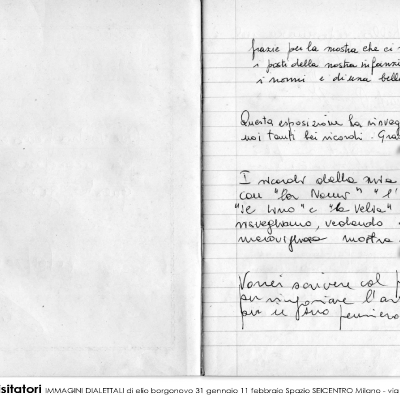 frazie per la mostra che ci
i posti della nostra infanzi
i nonni e di una bella
Questa esposizione ha risveg
noi tanti bei ricordi. Gra
I ricordi della mia
con "la Nanni" "l'
"il Lino" e "la Velia"
risvegliano, vedendo
meravigliosa mostra
Vorrei scrivere col
per ringraziare l'ar
per il suo pensiero
sitatori IMMAGINI DIALETTALI di elio borgonovo 31 gennaio 11 febbraio Spazio SEICENTRO Milano - via